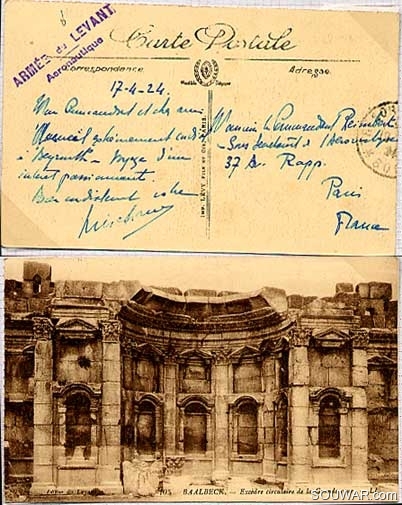 ARMÉE du LEVANT
Aéronautique
Carte Postale
Correspondance
Adresse
17-4-24.
Mon Commandant et cher ami
Accueil extrêmement cordial
à Beyrouth - Voyage d'un
intérêt passionnant.
Bien cordialement votre
Monsieur le Commandant
Sous Secrétariat à l'Aéronautique
37 Av. Rapp.
Paris
France
IMP. LÉVY FILS ET CIE, PARIS.
103 BAALBECK. - Exèdre circulaire de la
LL
SOUWAR.com